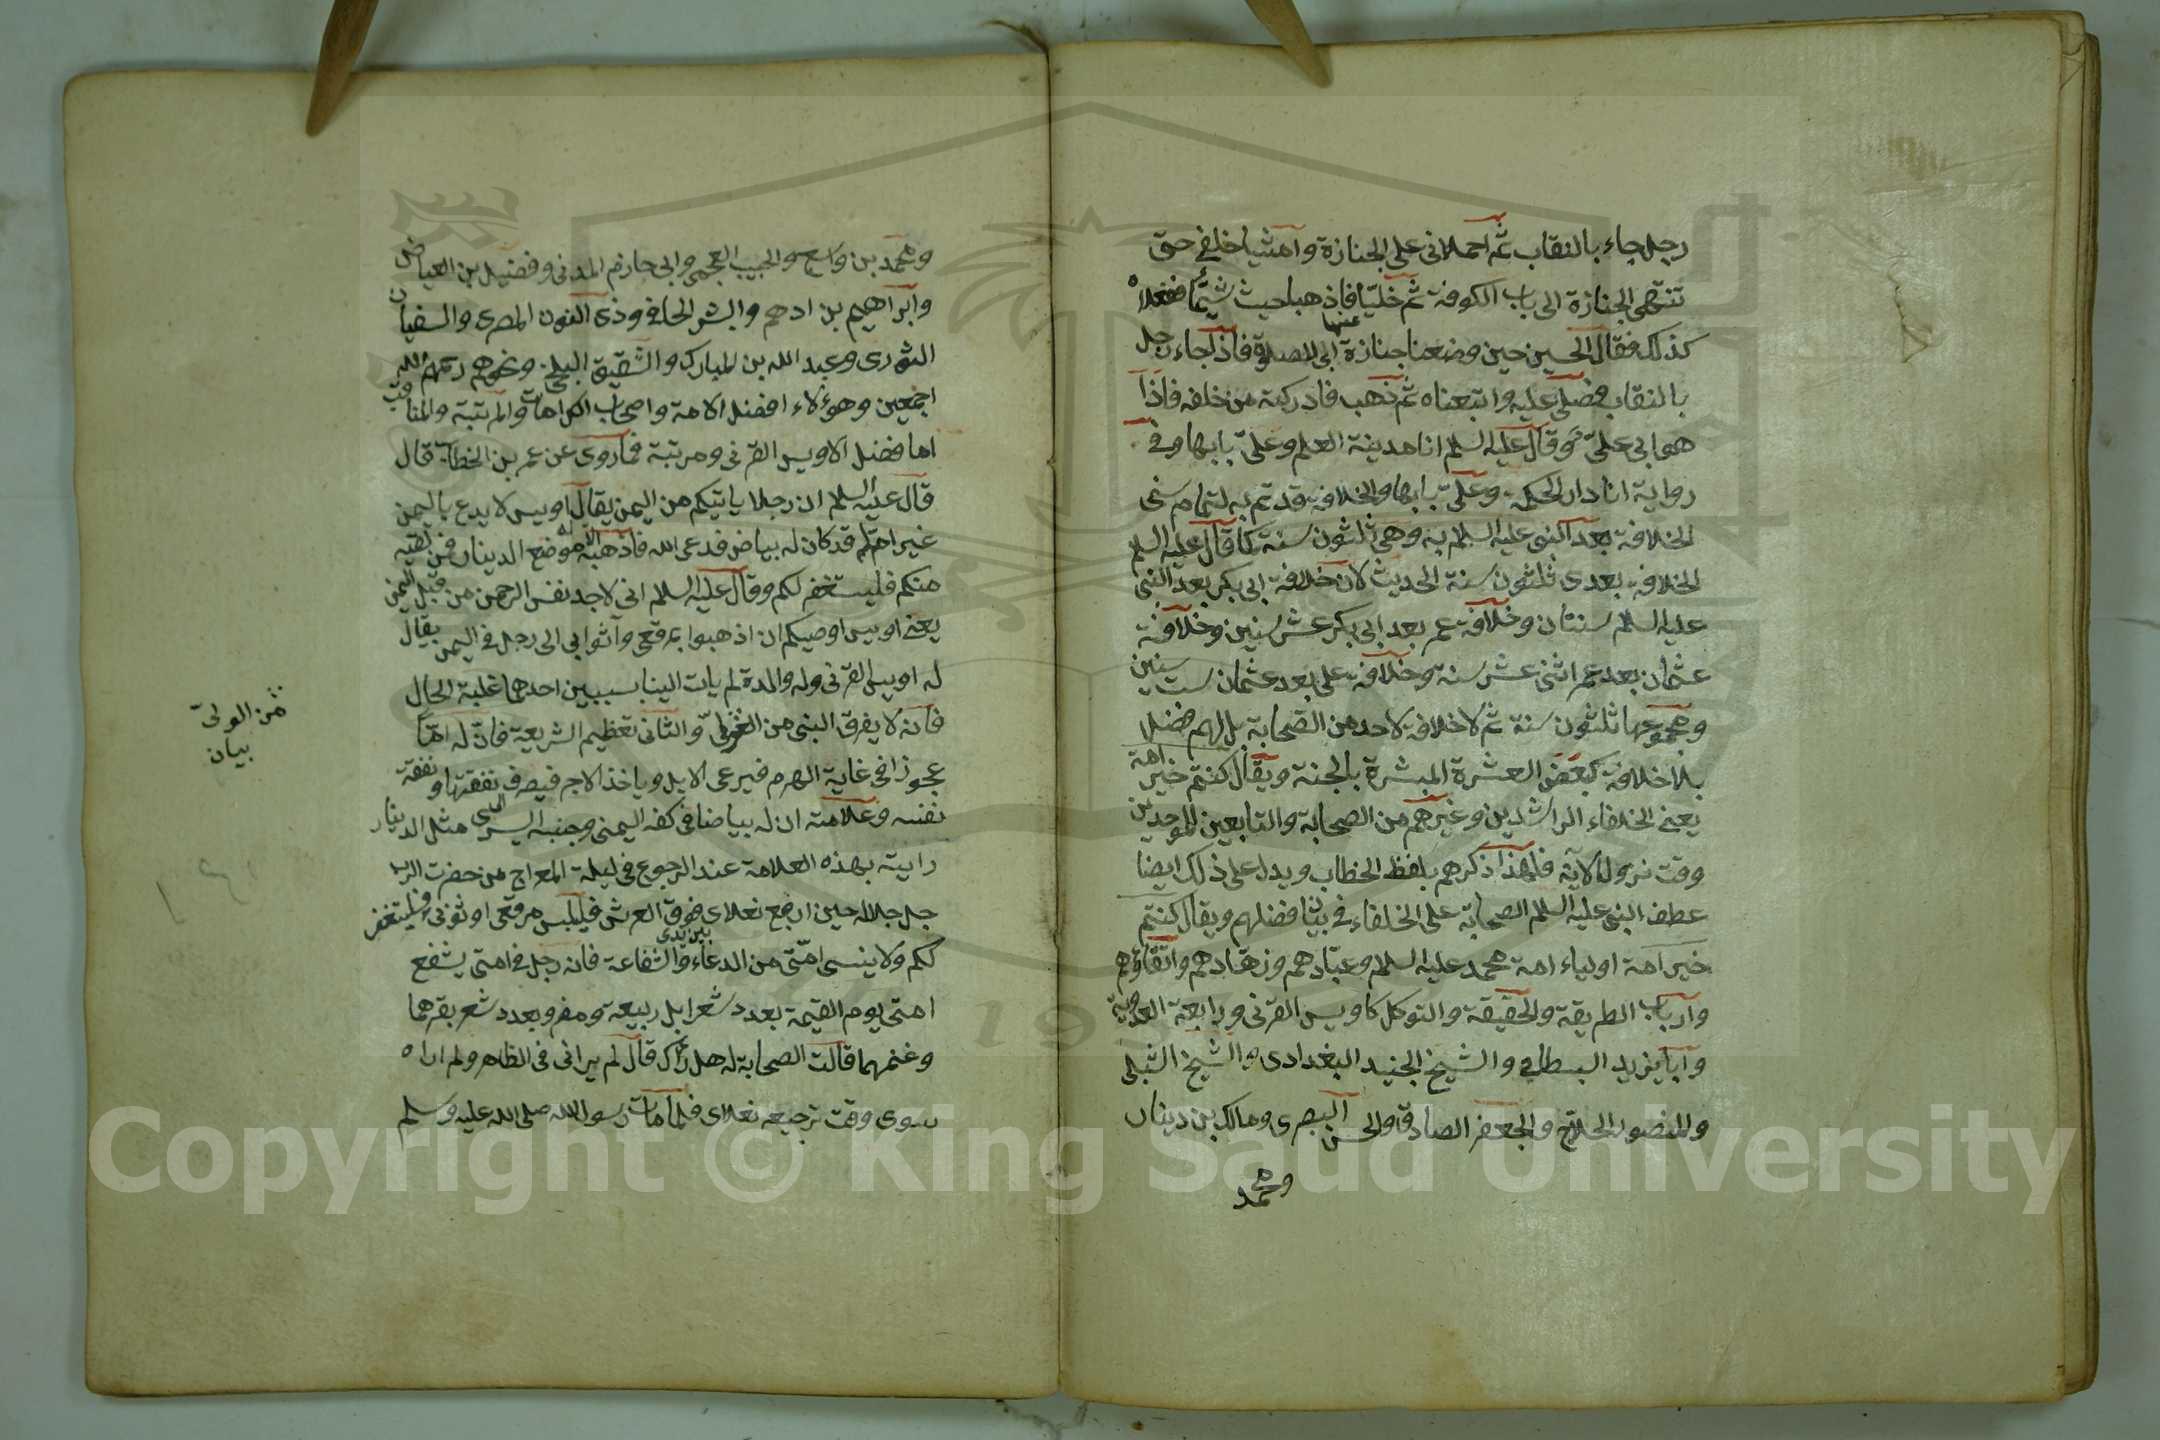 رجل جاء بالنقاب ثم احملانى على الجنازة وامشيا خلفى حتى
تنتهى الجنازة الى باب الكوفة ثم خليا فاذهبا حيث شيئما ففعلاه
كذلك فقال الحسين حين وضعنا جنازة ابى للصلوة فاذا جاء رجل
بالنقاب فصلى عليه واتبعناه ثم ذهب فادركته من خلفه فاذا
هو ابى على وقال عليه السلم انا مدينة العلم وعلى بابها وفى
رواية انا دار الحكمة وعلى بابها والخلافة قد تم به لتمام سنى
الخلافة بعد النبى عليه السلم به وهى ثلثون سنة كما قال عليه السلم
الخلافة بعدى ثلثون سنة الحديث لان خلافة ابى بكر بعد النبى
عليه السلم سنتان وخلافة عمر بعد ابى بكر عشر سنين وخلافة
عثمان بعد عمر اثنى عشر سنة وخلافة على بعد عثمان ست سنين
ومجموعها ثلثون سنة ثم لا خلافة لاحد من الصحابة بل لهم فضل
بلا خلافة كبعض العشرة المبشرة بالجنة ويقال كنتم خير امة
يعنى الخلفاء الراشدين وغيرهم من الصحابة والتابعين الموجدين
وقت نزول الآية فلهذا ذكرهم بلفظ الخطاب ويدل على ذلك ايضا
عطف النبى عليه السلم الصحابة على الخلفاء فى بيان فضلهم ويقال كنتم
خير امة اولياء امة محمد عليه السلم وعبادهم وزهادهم واتقاؤهم
وارباب الطريقة والحقيقة والتوكل كاويس القرنى ورابعة العدوية
وابا يزيد البسطامى والشيخ الجنيد البغدادى والشيخ الشبلى
والمنصور الحلاج والجعفر الصادق والحسن البصرى ومالك بن دينار
ومحمد
ومحمد بن واسع والحبيب العجمى وابى حازم المدنى وفضيل بن العياض
وابراهيم بن ادهم والبشر الحافى وذى النون المصرى والسفيان
الثورى وعبد الله بن المبارك والشقيق البلخى ونحوهم رحمهم الله
اجمعين وهؤلاء افضل الامة واصحاب الكرامات والمرتبة والمناقب
اما فضل الاويس القرنى ومرتبة فما روى عن عمر بن الخطاب قال
قال عليه السلم ان رجلا ياتيكم من اليمن يقال له اويس لا يدع باليمن
غير ام له قد كان له بياض فدعى الله فاذهبه الا موضع الدينار فمن لقيه
منكم فليستغفر لكم وقال عليه السلم انى لاجد نفس الرحمن من قبل اليمن
يعنى اويس اوصيكم ان اذهبوا بمرقعى واثوابى الى رجل فى اليمن يقال
له اويس القرنى وله والدة لم يات الينا بسببين احدهما غلبة الحال
فانه لا يفرق النبى من الولى والثانى تعظيم الشريعة فان له اما
عجوزا فى غاية الهرم فيرعى الابل وياخذ الاجر فيصرف نفقتها ونفقة
نفسه وعلامته ان له بياضا فى كفه اليمنى وجنبه اليسرى مثل الدينار
رايته بهذه العلامة عند الرجوع فى ليلة المعراج من حضرت الرب
جل جلاله حين ارفع نعلاى فوق العرش فيلبس مرقعى او ثوبى وليستغفر
لكم ولا ينسى امتى من الدعاء والشفاعة فانه رجل فى امتى يشفع
امتى يوم القيمة بعدد شعر ابل ربيعة ومضر وبعدد شعر بقرهما
وغنمهما قالت الصحابة له هل راك قال لم يرانى فى الظاهر ولم اراه
سوى وقت ترجيعه نعلاى فلما مات رسول الله صلى الله عليه وسلم
من الولى
بيان
Copyright © King Saud University